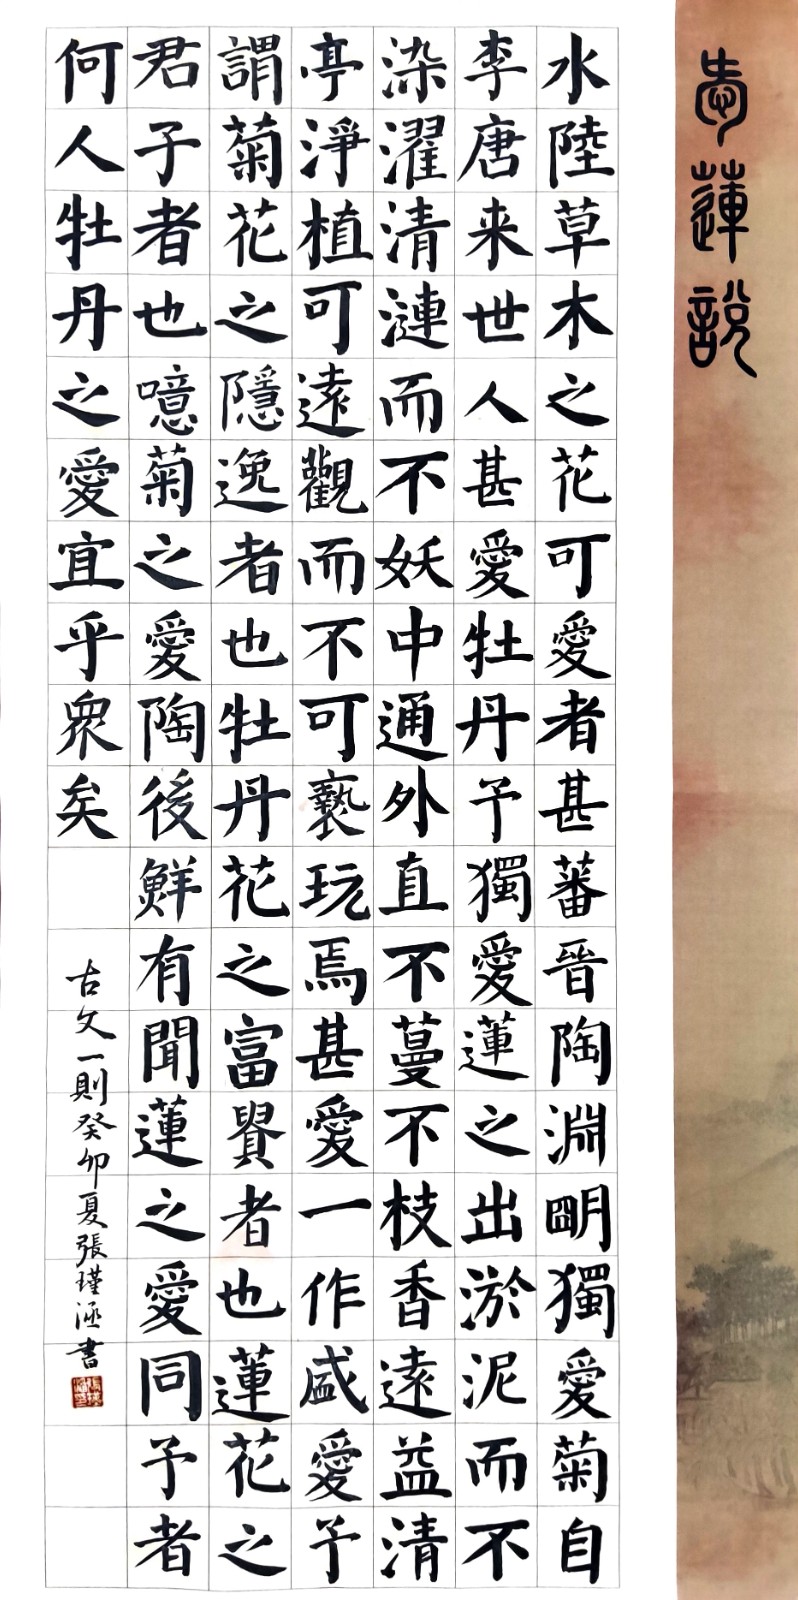 愛蓮說
水陸草木之花可愛者甚蕃晉陶淵明獨愛菊自
李唐来世人甚愛牡丹予獨愛蓮之出淤泥而不
染濯清漣而不妖中通外直不蔓不枝香遠益清
亭淨植可遠觀而不可褻玩焉甚愛一作盛愛予
謂菊花之隱逸者也牡丹花之富貴者也蓮花之
君子者也噫菊之愛陶後鮮有聞蓮之愛同予者
何人牡丹之愛宜乎眾矣
古文一則癸卯夏張瑾涵書